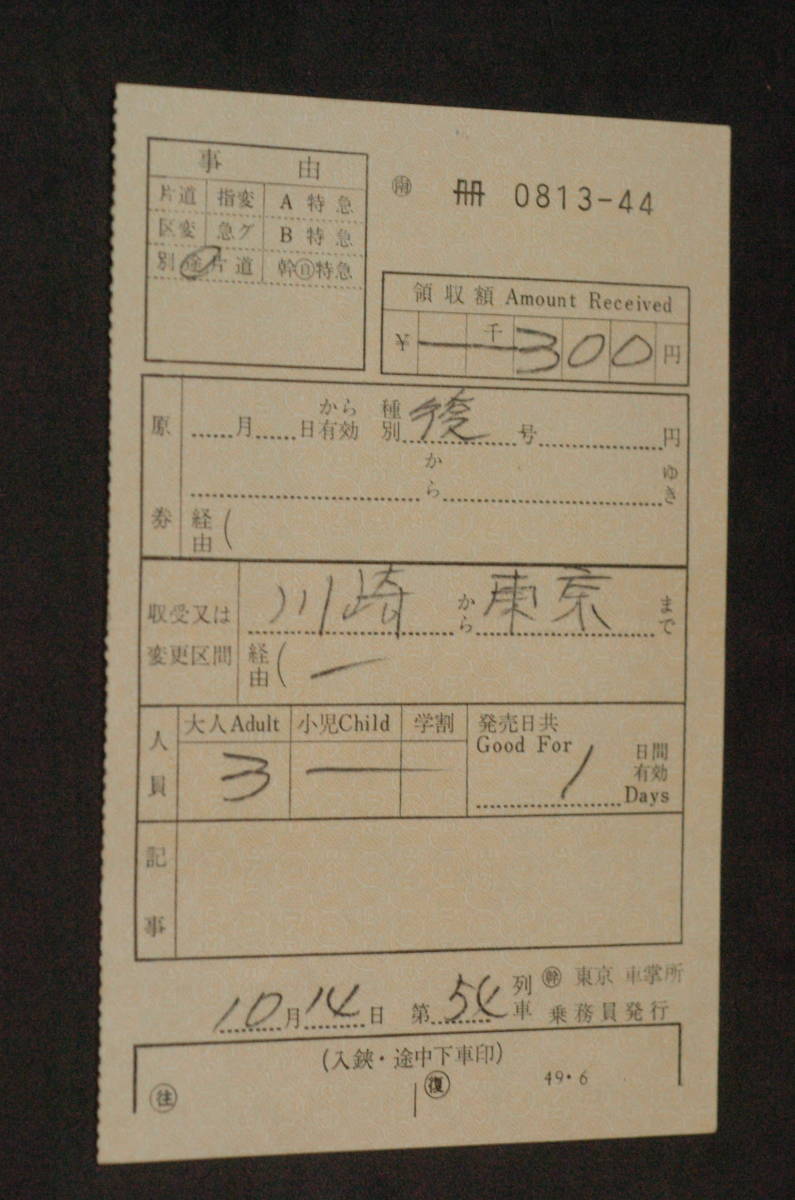 事由
片道 指変 A特急
区変 急グ B特急
別途片道 幹自特急
南 0813-44
領収額 Amount Received
¥ 千 300円
原券
月 日から有効 種別 後 号 円
から ゆき
経由(
収受又は変更区間
川崎から東京まで
経由( ―
人員
大人Adult 小児Child 学割 発売日共
Good For
3 ― 1 日間有効
Days
記事
10月14日 第54列車 幹 東京 車掌所
乗務員発行
(入鋏・途中下車印)
往 復 49・6